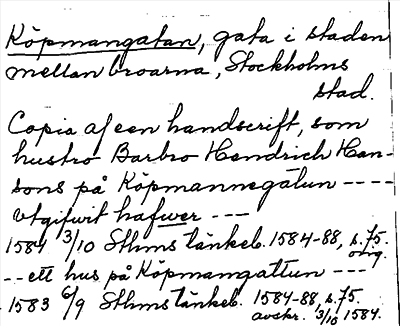 Köpmangatan, gata i staden
mellan broarna, Stockholms
stad.
Copia af een handscrift, som
hustro Barbro Hendrich Han-
sons på Köpmannegatun ----
utgifwit hafwer ---
1584 3/10 Sthms tänkeb. 1584-88, s. 75.
orig.
-- ett hus på Köpmangattun ---
1583 6/9 Sthms tänkeb. 1584-88, s. 75.
avskr. 3/10 1584.